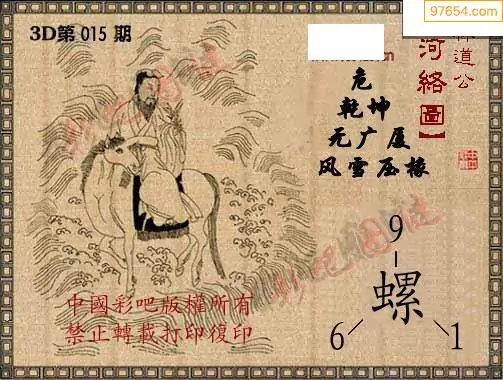 97654.com
3D第 015 期
道公
河絡圖】
危
乾坤
无广厦
风雪压椽
9
螺
6
1
中國彩吧版權所有
禁止轉載打印復印